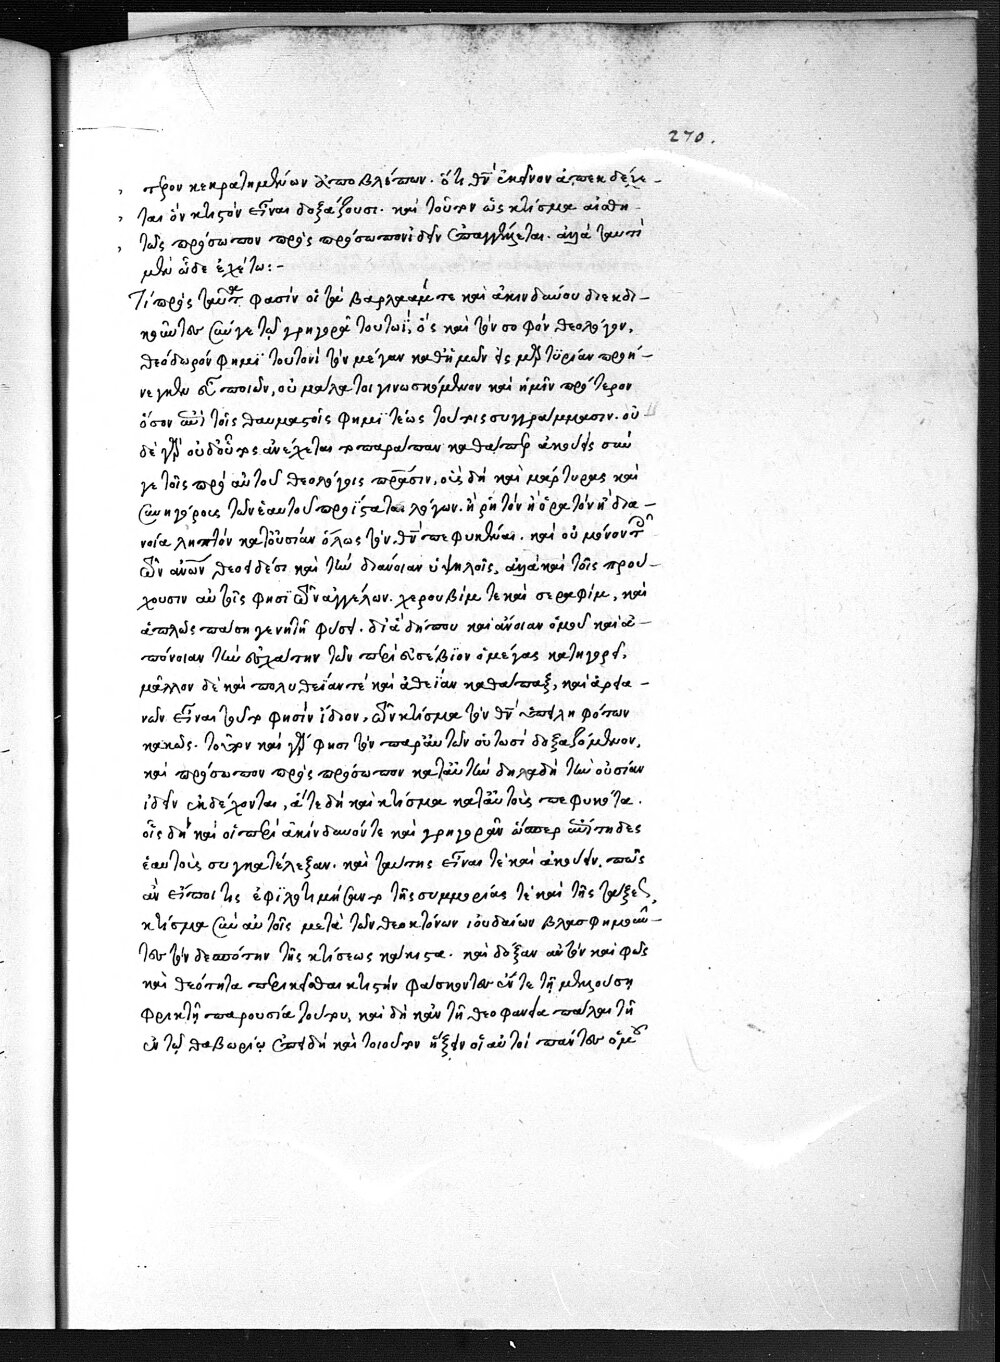 270.
τρον κεκρατημένων ἀποβλέπων. ὅτι θν̅ ἐκεῖνον ἀπεκδέχε-
ται ὃν κτιστὸν εἶναι δοξάζουσι. καὶ τοῦτον ὡς κτίσμα αἰσθη-
τῶς πρόσωπον πρὸς πρόσωπον ἰδεῖν ἐπαγγέλεται. ἀλλὰ ταυτὶ
μὲν ὧδε ἐχέτω:-
Τί πρὸς ταῦτα φασὶν οἱ τὰ βαρλαάμ τε καὶ ἀκινδύνου διεκδι-
κοῦντες σύν γε τῷ γρηγορᾷ τουτωΐ, ὃς καὶ τὸν σοφὸν θεολόγον,
θεόδωρον φημὶ τουτονὶ τὸν μέγαν καθ' ἡμῶν εἰς μαρτυρίαν προή-
νεγκεν οὐ ποιῶν, οὐ μάλα τοι γινωσκόμενον καὶ ἡμῖν πρότερον
ὅσον ἐπὶ τοῖς θαυμαστοῖς φημὶ τέως τούτοις συγγράμμασιν. οὐ
δὲ γὰρ οὐδ' οὗτος ἀνέχεται τὸ παράπαν καθάπερ ἀκούεις σύν
γε τοῖς πρὸ αὐτοῦ θεολόγοις πᾶσιν, οὓς δὴ καὶ μάρτυρας καὶ
συνηγόρους τῶν ἑαυτοῦ προΐσταται λόγων. ἢ ῥητὸν ἢ ὁρατὸν ἢ δια-
νοίᾳ ληπτὸν κατουσίαν ὅλως τὸν θν̅ πεφυκέναι. καὶ οὐ μόνον
τῶν ανων θεοειδέσι καὶ τὴν διάνοιαν ὑψηλοῖς, ἀλλὰ καὶ τοῖς πρού-
χουσιν αὐτοῖς φησὶ τῶν ἀγγέλων. χερουβίμ τε καὶ σεραφίμ, καὶ
ἁπλῶς πάσῃ γενητῇ φύσει. δι' ἃ δήπου καὶ ἄνοιαν ὁμοῦ καὶ ἀ-
πόνοιαν τὴν ἐσχάτην τῶν περὶ εὐσέβιον ὁ μέγας κατηγορεῖ,
μᾶλλον δὲ καὶ πολυθεΐαν τὲ καὶ ἀθεΐαν καθάπαξ, καὶ ἀρεια-
νῶν εἶναι τοῦτο φησὶν ἴδιον, τῶν κτίσμα τὸν θν̅ ὑπειληφότων
κακῶς. τοῦτον καὶ γάρ φησι τὸν παρ' αὐτῶν οὑτωσὶ δοξαζόμενον,
καὶ πρόσωπον πρὸς πρόσωπον κατ' αὐτὴν δηλαδὴ τὴν οὐσίαν
ἰδεῖν ἐκδέχονται, ἅτε δὴ καὶ κτίσμα κατ' αὐτοὺς πεφυκότα.
οἷς δὴ καὶ οἱ περὶ ἀκίνδυνόν τε καὶ γρηγορᾶν ὥσπερ ἐπίτηδες
ἑαυτοὺς συγκατέλεξαν. καὶ ταύτης εἶναι τὲ καὶ ἀκούειν, πῶς
ἂν εἴποι τις ἐφιλοτιμήσαντο τῆς συμμορίας τὲ καὶ τῆς τάξεως,
κτίσμα σὺν αὐτοῖς μετὰ τῶν θεοκτόνων ἰουδαίων βλασφημοῦν-
τες τὸν δεσπότην τῆς κτίσεως κάκιστα. καὶ δόξαν αὐτὸν καὶ φῶς
καὶ θεότητα περικεῖσθαι κτιστὴν φάσκοντες ἔν τε τῇ μελλούσῃ
φρικτῇ παρουσίᾳ τούτου, καὶ δὴ κἀν τῇ θεοφανείᾳ πάλαι τῇ
ἐν τῷ θαβωρίῳ ἐπειδὴ καὶ τοιοῦτον ἥξειν οἱ αὐτοὶ πάντες ὁμοῦ